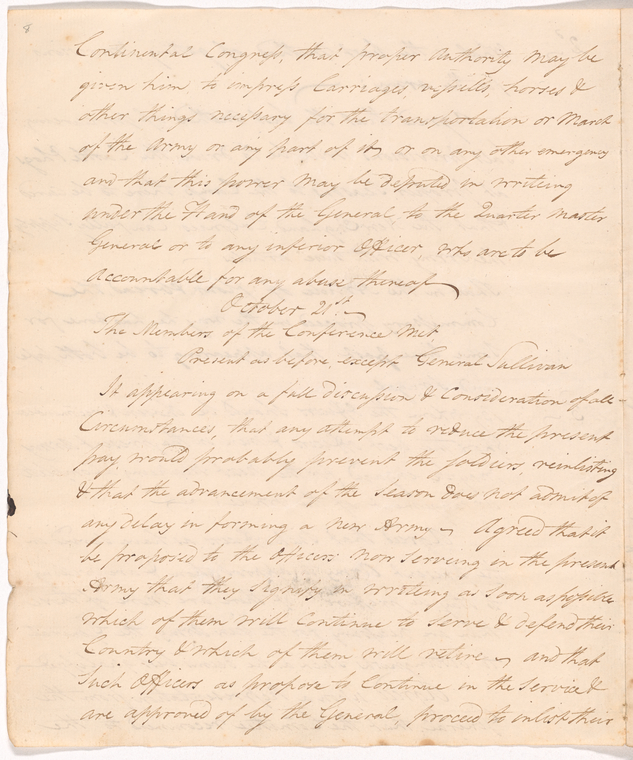 8
Continental Congress, that proper Authority may be
given him to impress Carriages vessells, horses &
other things necissary for the transportation or March
of the Army or any part of it, or on any other emergency
and that this power may be deputed in writeing
under the Hand of the General to the Quarter Master
General or to any inferior Officer, who are to be
accountable for any abuse thereof
October 21st.
The Members of the Conference Met
Present as before, except General Sullivan
It appearing on a full discussion & Consideration of all
Circumstances, that any attempt to reduce the present
pay, would probably prevent the soldiers, reinlisting
& that the advancement of the Season does not admit of
any delay in forming a new Army Agreed that it
be proposed to the Officers now serveing in the present
Army that they signify in writeing as soon as possible
which of them will Continue to serve & defend their
Country & which of them will retire and that
Such Officers as propose to Continue in the Service &
are approved of by the General, proceed to inlist their